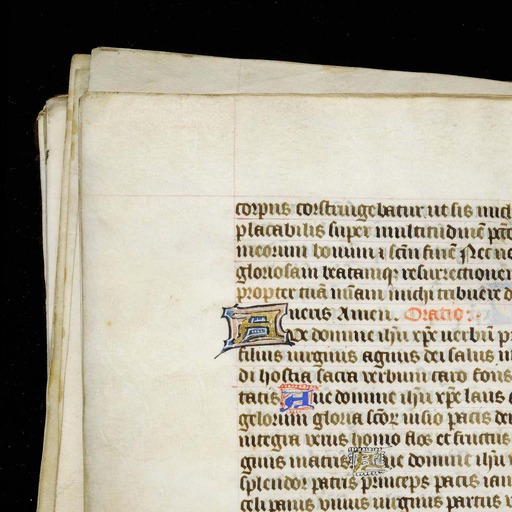 corpus constringebatur ut sis mich
placabilis super multitudinē
meorum bonum ⁊ scm̄ finē Nec no
gloriosam beatamq resurrectionem
propter tuā michi tribuere d
ueris Amen. Oratio.
Aue domine ihū xp̄e uerbū p
filius uirginis agnus dei salus
di hostia sacra verbum caro fons
tatis Aue domine ihū xp̄e laus
gelorum gloria scōr visio pacis dei
integra verus homo flos et fructus
ginis matris Aue domine ihū
splendor patris princeps pacis ian
celi panis viuus uirginis partus v